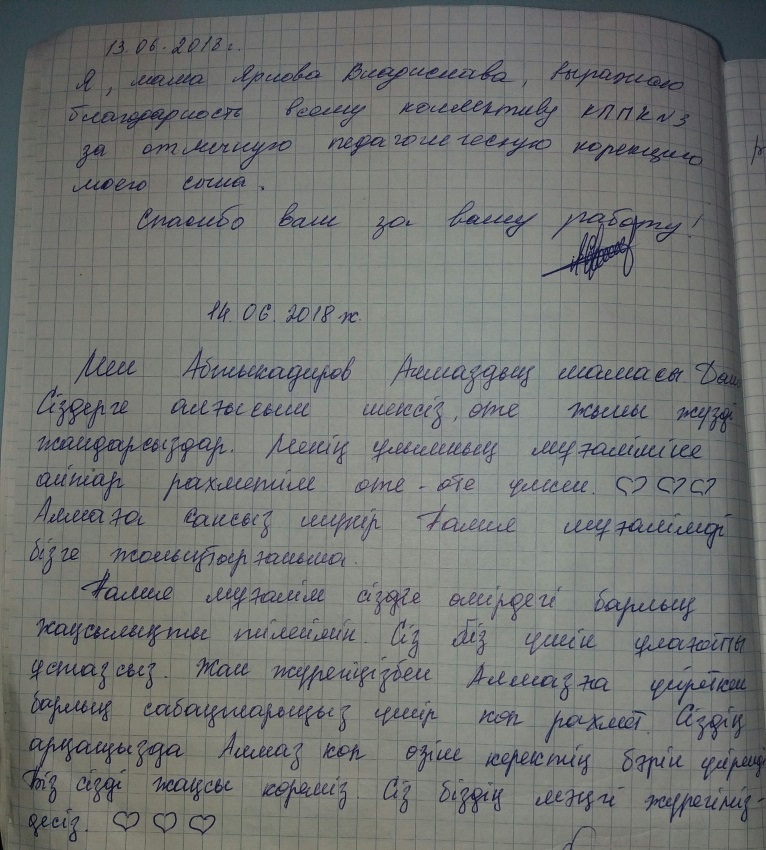 13.06.2018г.
Я, мама Ярлова Владислава, выражаю
благодарность всему коллективу КППК№3
за отличную педагогическую корекцию
моего сына.
Спасибо Вам за вашу работу!
14.06.2018 ж.
Мен Абдыкадиров Алмаздың мамасы
Сіздерге алғысым шексіз, өте жылы жүзді
жандарсыздар. Менің ұлымның мұғаліміне
айтар рахметім өте-өте үлкен. ♡♡♡
Алмаға сансыз шүкір Галия мұғалімді
бізге жолықтырғанына.
Галия мұғалім сізге өмірдегі барлық
жақсылықты тілеймін. Сіз біз үшін ұлағатты
ұстазсыз. Жан жүрегіңізбен Алмазға үйреткен
барлық сабақтарыңыз үшін көп рахмет. Сіздің
арқаңызда Алмаз көп өзіне керектің бәрін үйренді
Біз сізді жақсы көреміз. Сіз біздің мәңгі жүрегіміз-
десіз. ♡ ♡ ♡